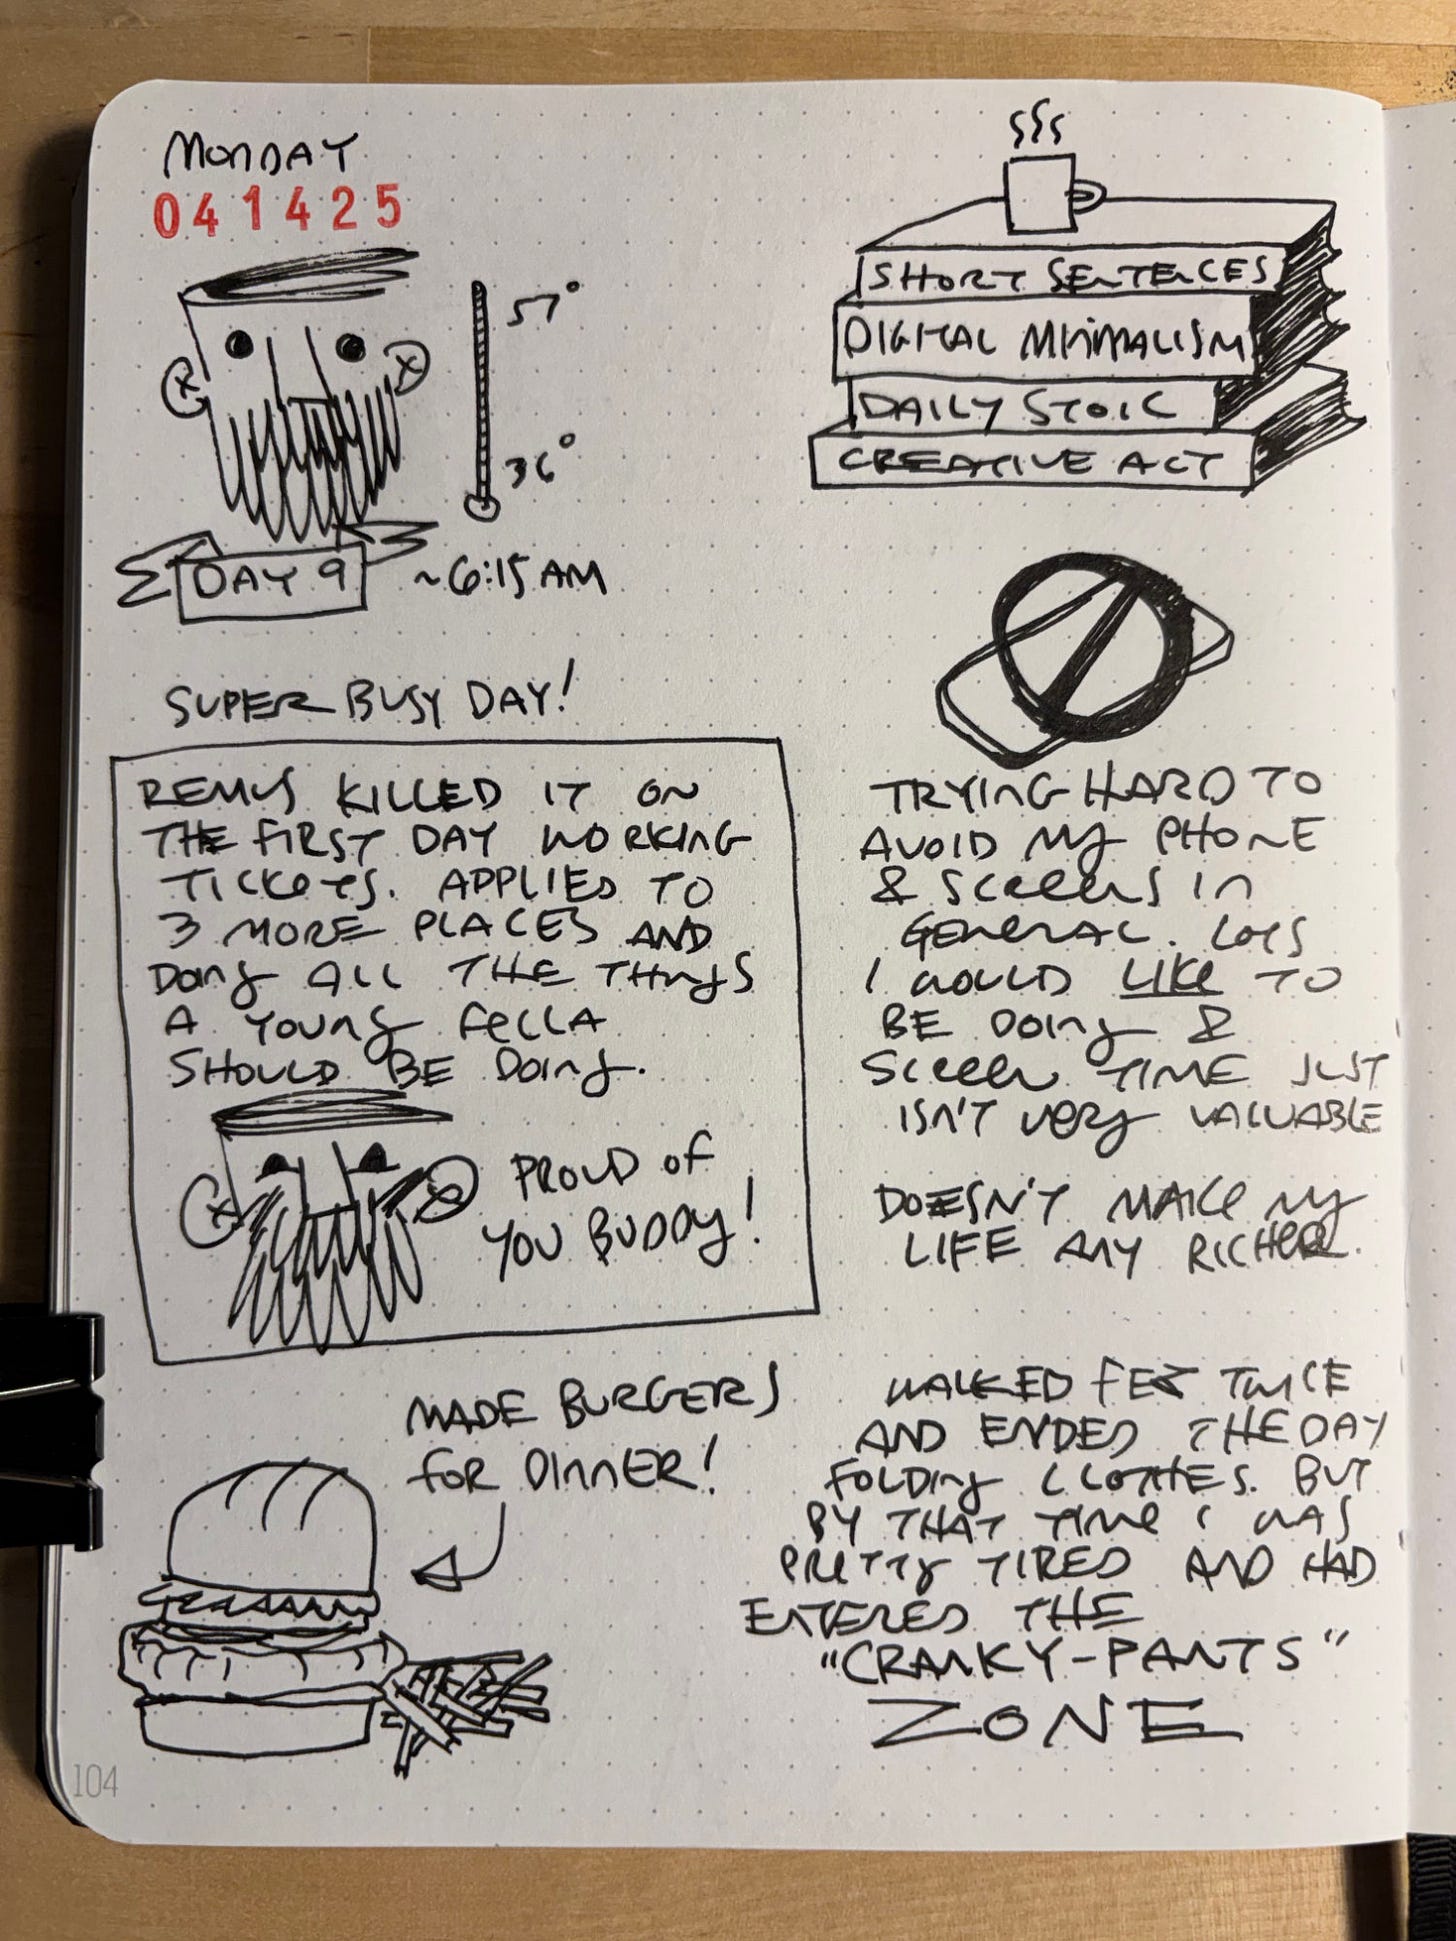 MONDAY
041425
57°
36°
DAY 9
~6:15 AM
SUPER BUSY DAY!
REMUS KILLED IT ON
THE FIRST DAY WORKING
TICKETS. APPLIED TO
3 MORE PLACES AND
DOING ALL THE THINGS
A YOUNG FELLA
SHOULD BE DOING.
PROUD OF
YOU BUDDY!
MADE BURGERS
FOR DINNER!
SHORT SENTENCES
DIGITAL MINIMALISM
DAILY STOIC
CREATIVE ACT
TRYING HARD TO
AVOID MY PHONE
& SCREENS IN
GENERAL. LOTS
I WOULD LIKE TO
BE DOING &
SCREEN TIME JUST
ISN'T VERY VALUABLE
DOESN'T MAKE MY
LIFE ANY RICHER.
WALKED FEZ TWICE
AND ENDED THE DAY
FOLDING CLOTHES. BUT
BY THAT TIME I WAS
PRETTY TIRED AND HAD
ENTERED THE
"CRANKY-PANTS"
ZONE
104